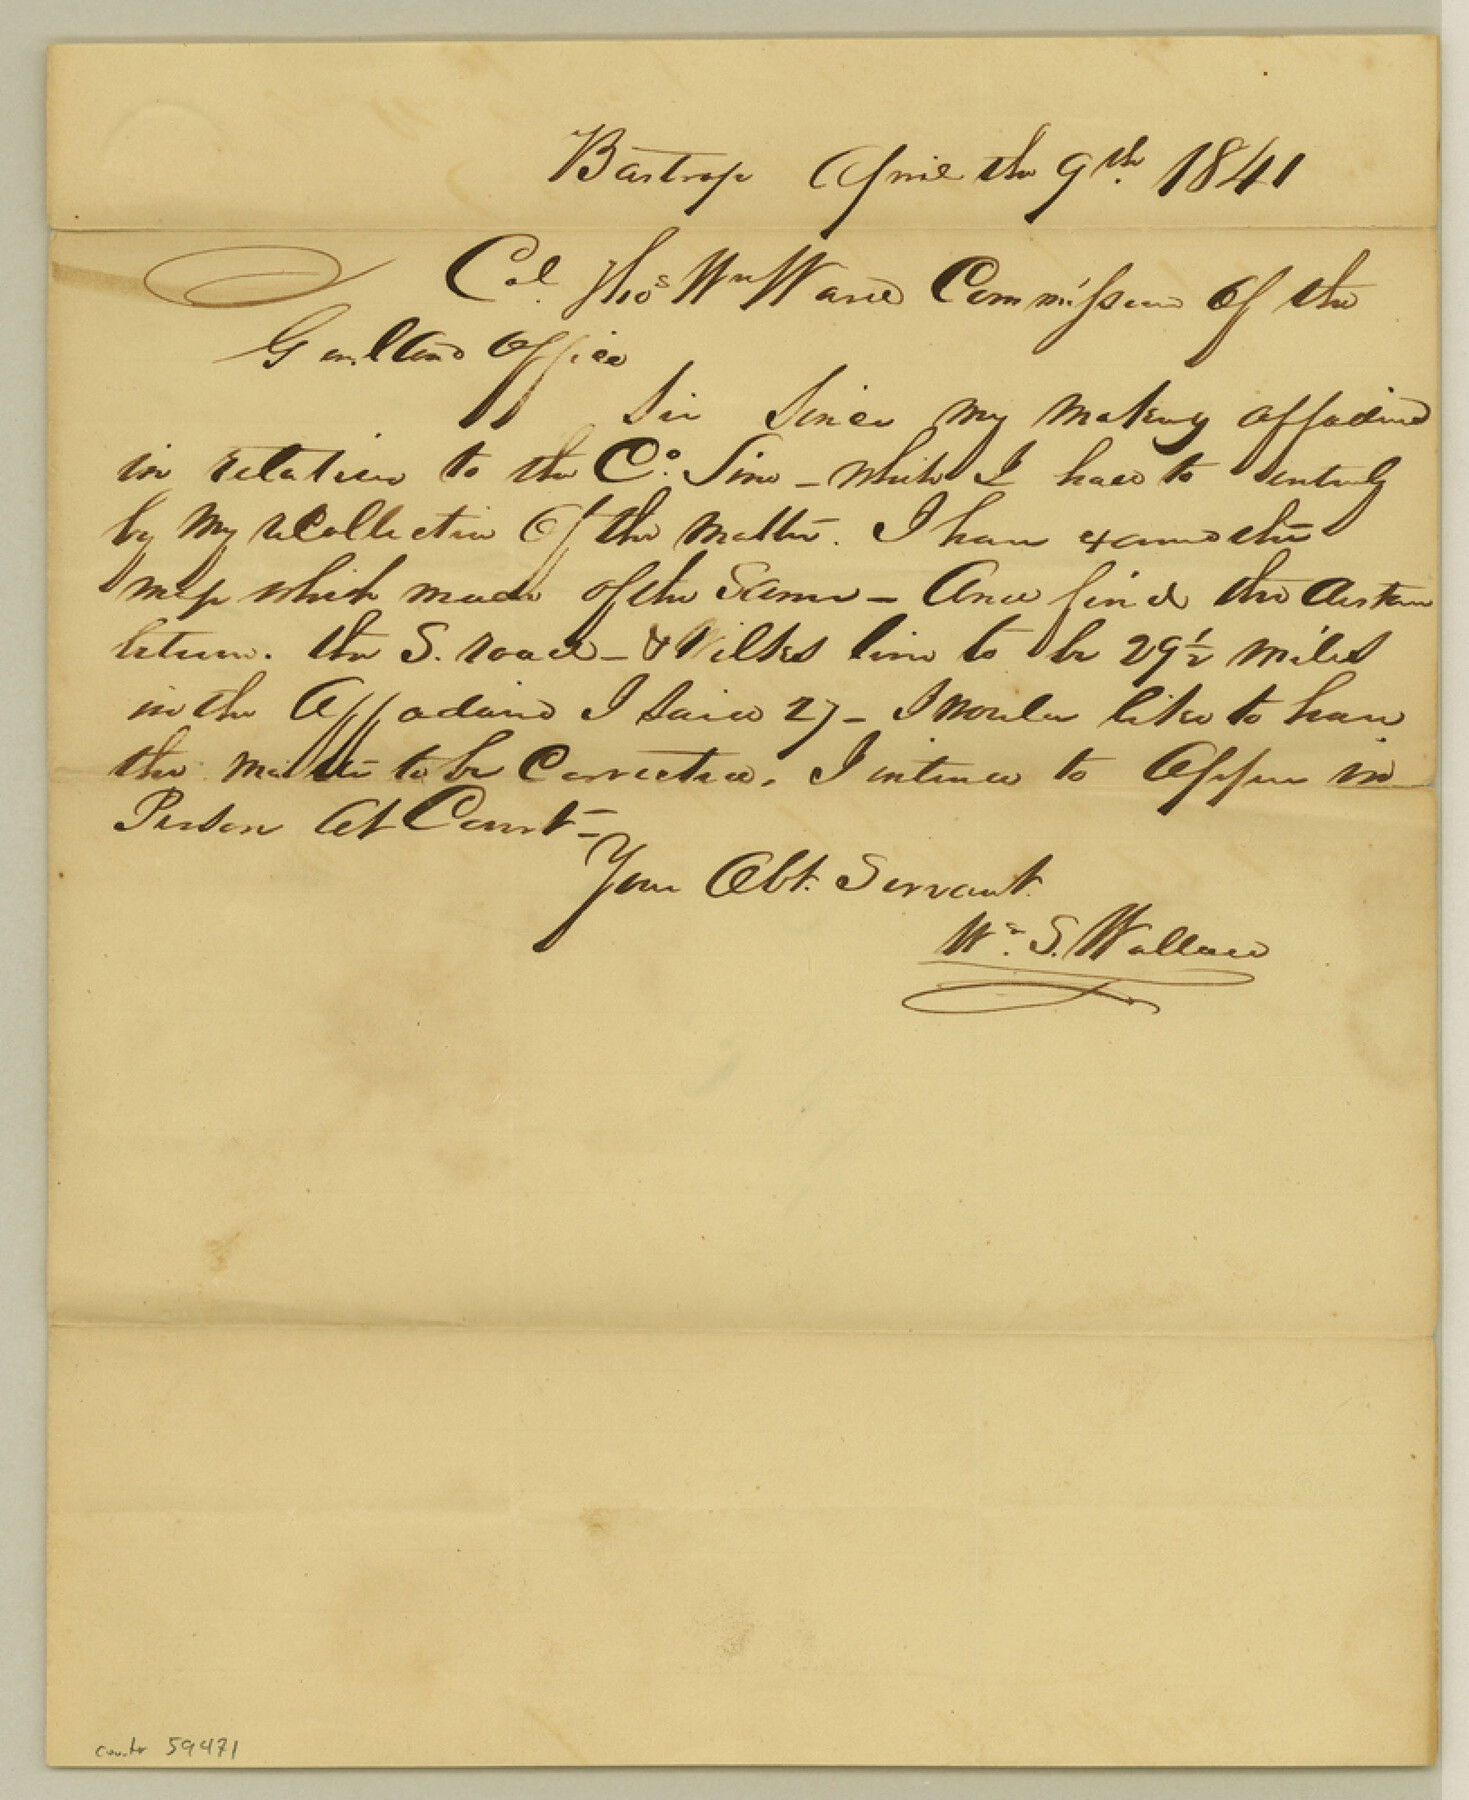 Bastrop April the 9th. 1841
Col. Thos Wm Ward Commissioner of the
Genl. Land Office
Sir Since my making affadavid
in relation to the Co. Line - which I had to entirely
by my recollection of the matter. I have examed the
map which made of the Same - And find the distan
betwen. the S. road - & Wilks line to be 29½ miles
in the Affadavid I said 27 - I would like to have
the matter to be Corrected. I intend to Appear in
Person At Court -
Your Obt. Servant
Wm. S. Wallace
counter 59471